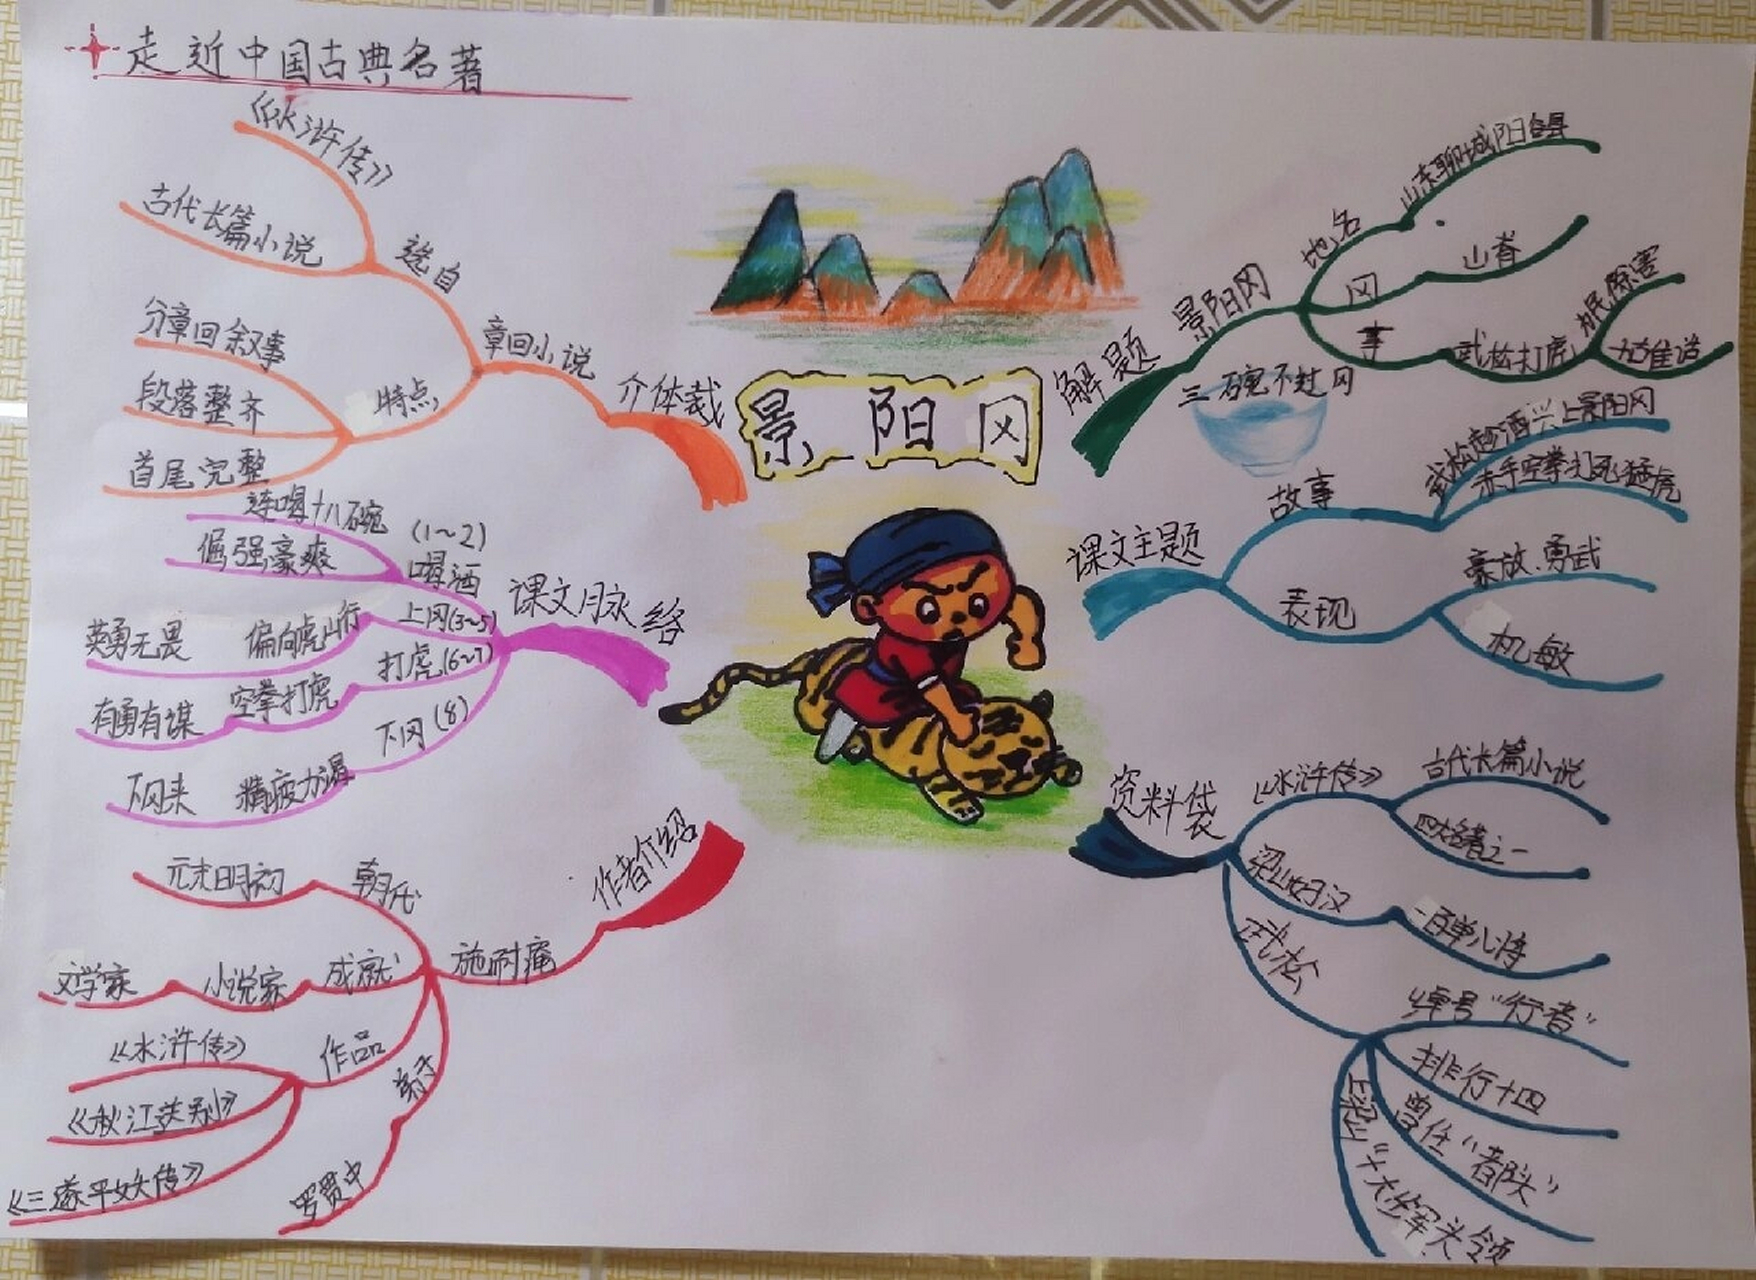 走近中国古典名著
景阳冈
介体裁
章回小说
选自
《水浒传》
古代长篇小说
特点
分章回叙事
段落整齐
首尾完整
课文脉络
(1~2)
喝酒
连喝十八碗
倔强豪爽
上冈(3~5)
偏向虎山行
英勇无畏
打虎(6~7)
空拳打虎
有勇有谋
下冈(8)
精疲力竭
下冈来
作者介绍
施耐庵
朝代
元末明初
成就
小说家
文学家
作品
《水浒传》
《秋江送别》
《三遂平妖传》
弟子
罗贯中
解题
景阳冈
地名
山东聊城阳谷县
冈
山脊
事
武松打虎
为民除害
三碗不过冈
课文主题
故事
武松趁酒兴上景阳冈
赤手空拳打死猛虎
表现
豪放、勇武
机敏
资料袋
《水浒传》
古代长篇小说
四大名著之一
梁山好汉
一百单八将
武松
绰号“行者”
排行十四
曾任“都头”
梁山“十大步军头领